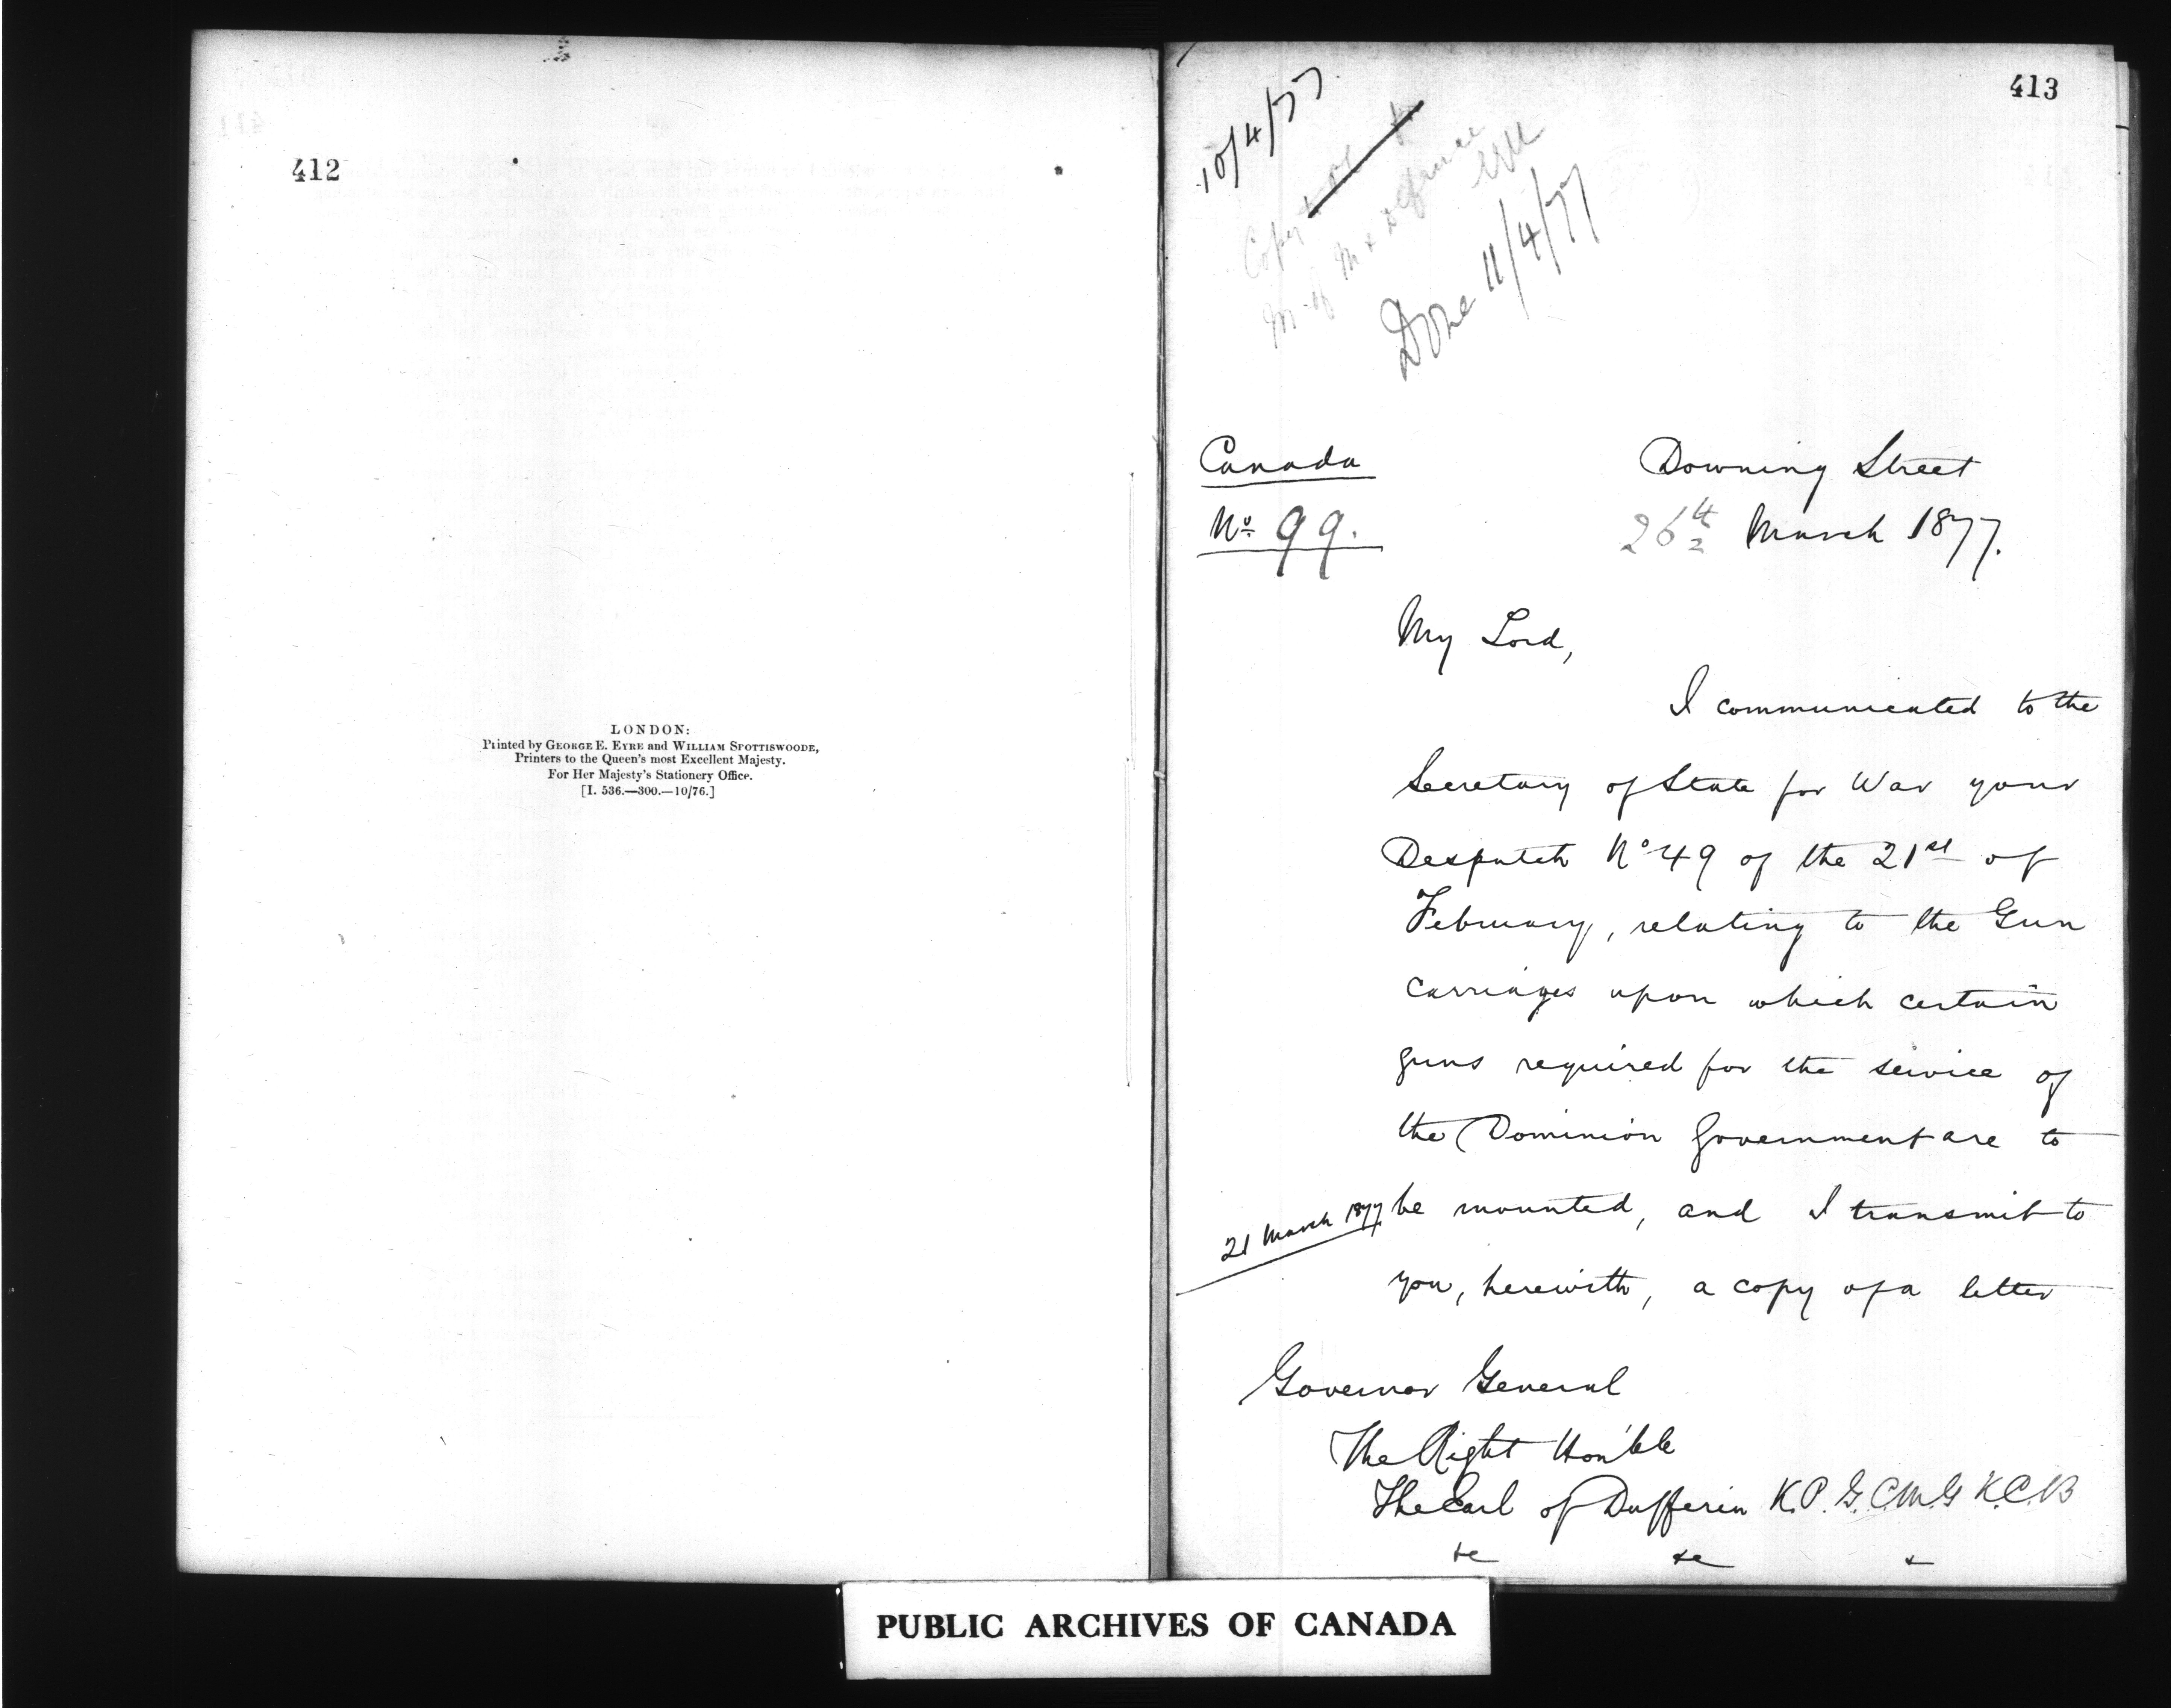 412
LONDON:
Printed by GEORGE E. EYRE and WILLIAM SPOTTISWOODE,
Printers to the Queen's most Excellent Majesty.
For Her Majesty's Stationery Office.
[I. 536.—300.—10/76.]
413
10/4/77
Copy
M. of M & Defence
Done 11/4/77
Canada
No. 99.
Downing Street
26th March 1877.
My Lord,
I communicated to the
Secretary of State for War your
Despatch No 49 of the 21st of
February, relating to the Gun
carriages upon which certain
guns required for the service of
the Dominion Government are to
21 March 1877
be mounted, and I transmit to
you, herewith, a copy of a letter
Governor General
The Right Hon'ble
The Earl of Dufferin K.P. G.C.M.G K.C.B
&c &c &
PUBLIC ARCHIVES OF CANADA